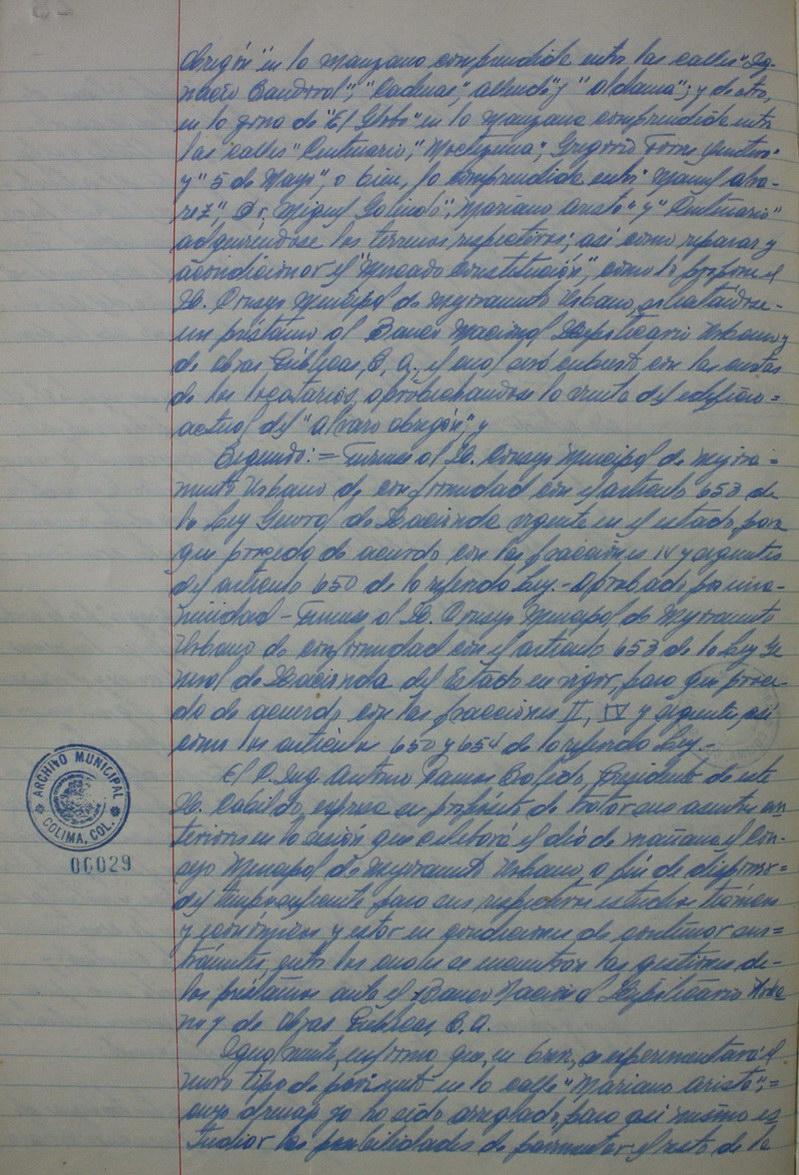 Obregón" en la manzana comprendida entre las calles "Ig-
nacio Sandoval", "Cadenas", "Allende" y "Aldama"; y de otro,
en la zona de "El Globo" en la manzana comprendida entre
las calles "Centenario", "Moctezuma", "Gregorio Torres Quintero"
y "5 de Mayo", o bien, la comprendida entre "Manuel Alva-
rez", "Dr. Miguel Galindo", "Mariano Arista" y "Centenario"
adquiriéndose los terrenos respectivos; así como reparar y
acondicionar el "Mercado Constitución", como lo propone el
H. Consejo Municipal de Mejoramiento Urbano,
un préstamo al Banco Nacional Hipotecario Urbano y
de Obras Públicas, S. A., el cual será cubierto con las cuotas
de los locatarios, aprobechandose la venta del edificio =
actual del "Alvaro Obregón"; y
Segundo: = Turnese al H. Consejo Municipal de Mejora-
miento Urbano de conformidad con el artículo 653 de
la Ley General de Hacienda vigente en el estado, para
que proceda de acuerdo con las fracciones IV y siguientes
del artículo 650 de la referida Ley.- Aprobado por una-
nimidad - Turnese al H. Consejo Municipal de Mejoramiento
Urbano de conformidad con el artículo 653 de la Ley Ge
neral de Hacienda del Estado en vigor, para que proce-
da de acuerdo con las fracciones II, IV y siguientes, así
como los artículos 650 y 654 de la referida Ley.-
El C. Ing. Antonio Ramos Salcedo, Presidente de este
H. Cabildo, expresa su propósito de tratar sus asuntos an-
teriores en la sesión que celebrará el día de mañana el Con-
sejo Municipal de Mejoramiento Urbano, a fin de disponer =
del tiempo suficiente para sus respectivos estudios técnicos
y económicos y estar en condiciones de continuar sus =
trámites, entre los cuales se encuentran las gestiones de-
los préstamos ante el Banco Nacional Hipotecario Urba
no y de Obras Públicas, S. A.
Igualmente, informa que, en breve, se experimentará el
nuevo tipo de pavimento en la calle "Mariano Arista", =
cuyo drenaje ya ha sido arreglado, para así mismo es
tudiar las posibilidades de pavimentar el resto de la
ARCHIVO MUNICIPAL
COLIMA, COL.
00029